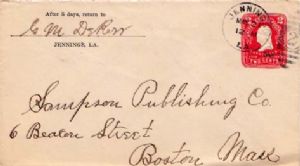 After 5 days, return to
JENNINGS, LA.
JENNIN
TWO CENTS
Sampson Publishing Co.
6 Beacon Street
Boston Mass